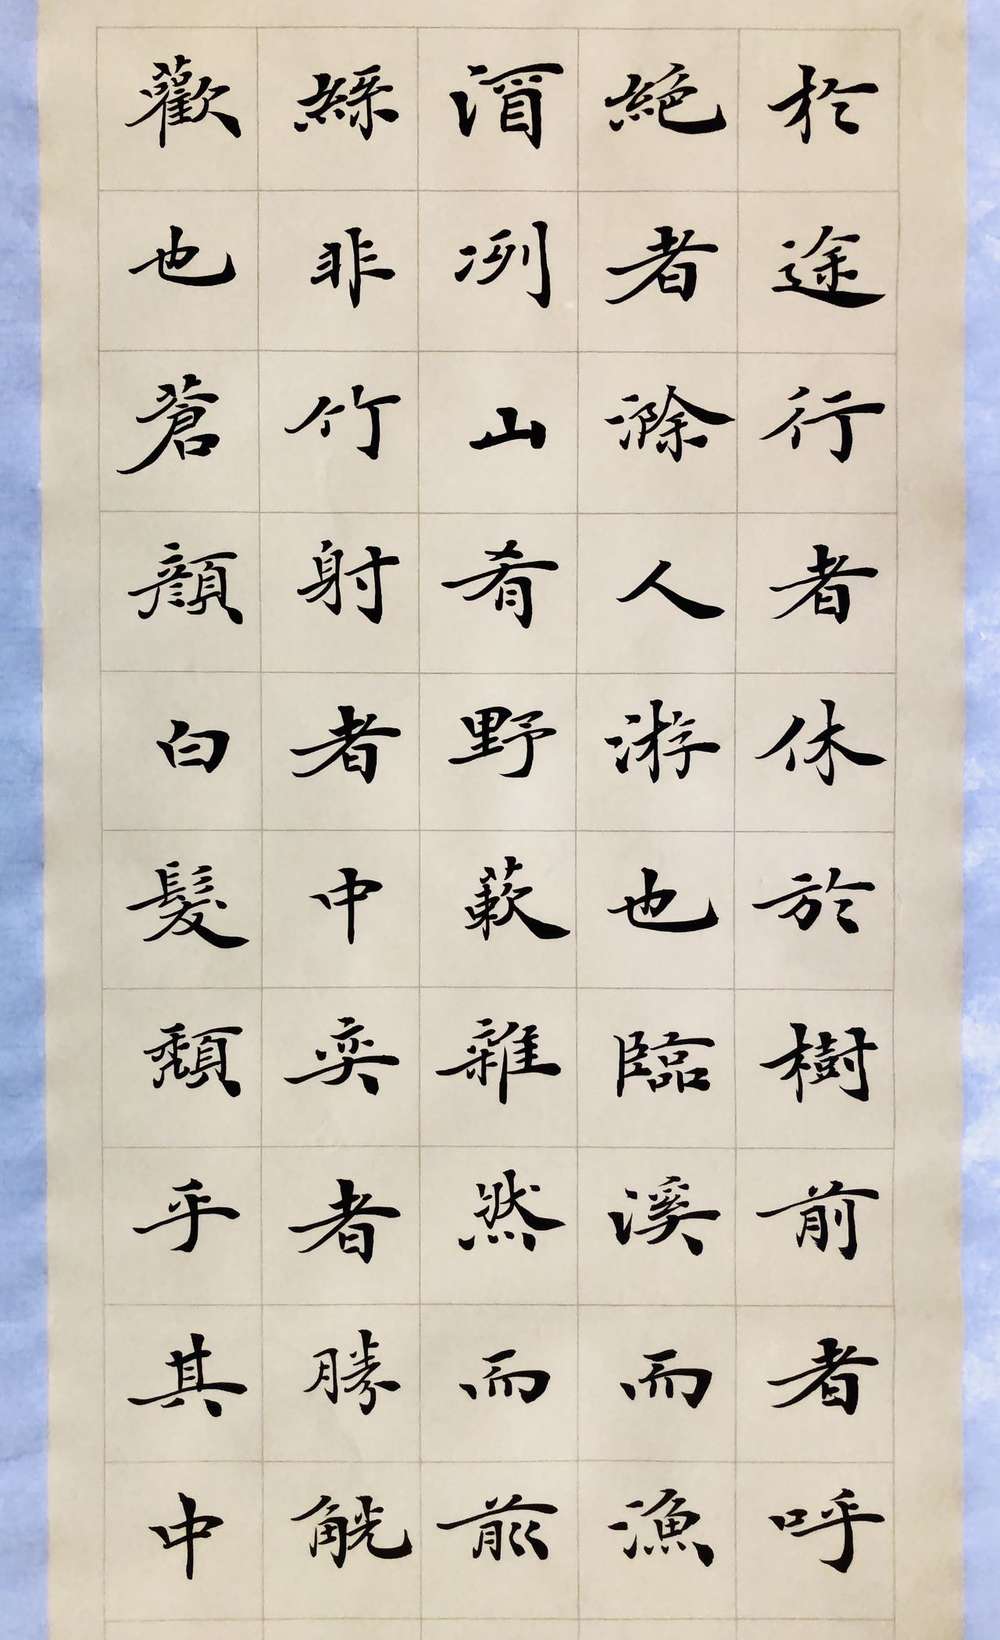 於途行者休於樹前者呼
絕者滁人游也臨溪而漁
酒冽山肴野蔌雜然而前
絲非竹射者中奕者勝觥
歡也蒼顏白髮頹乎其中